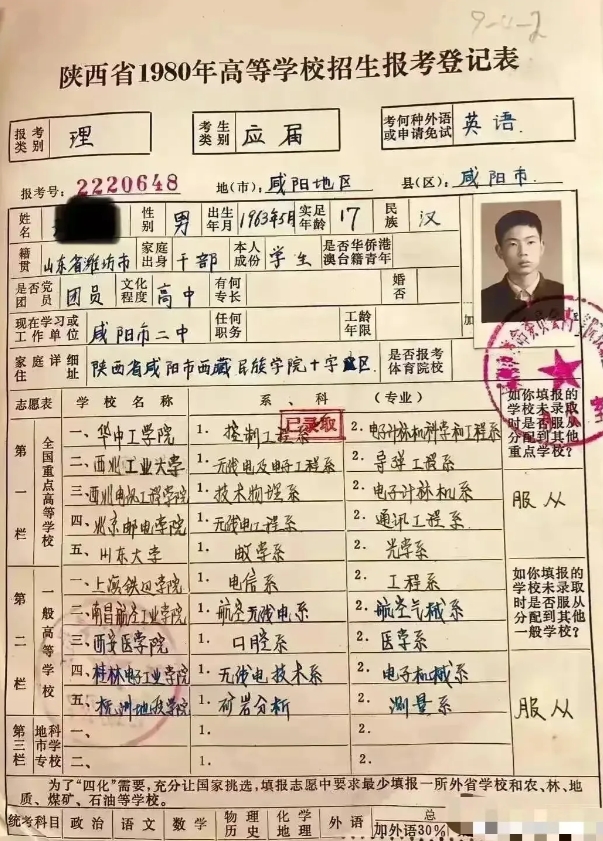 9-2-2
陕西省1980年高等学校招生报考登记表
报考类别 理 考生类别 应届 考何种外语或申请免试 英语.
报考号: 2220648 地(市): 咸阳地区 县(区): 咸阳市.
姓名 性别 男 出生年月 1963年5月 实足年龄 17 民族 汉
籍贯 山东省潍坊市 家庭出身 干部 本人成份 学生 是否华侨港澳台籍青年
是否党团员 团员 文化程度 高中 有何专长 婚否
现在学习或工作单位 咸阳市二中 任何职务 工龄年限 加
家庭详细住址 陕西省咸阳市西藏民族学院十字区 是否报考体育院校
志愿表 学校名称 系、科 (专业) 如你填报的学校未录取时是否服从分配到其他重点学校?
已录取
第一栏 全国重点高等学校
一、华中工学院 1. 控制工程系 2. 电子计标机科学和工程系
二、西北工业大学 1. 无线电及电子工程系 2. 导弹工程系
三、西北电讯工程学院 1. 技术物理系 2. 电子计标机系 服从
四、北京邮电学院 1. 无线电工程系 2. 通讯工程系
五、山东大学 1. 数学系 2. 光学系
第二栏 一般高等学校 如你填报的学校未录取时是否服从分配到其他一般学校?
一、上海铁道学院 1. 电信系 2. 工程系
二、南昌航空工业学院 1. 航空无线电系 2. 航空气械系
三、西安医学院 1. 口腔系 2. 医学系
四、桂林电子工业学院 1. 无线电技术系 2. 电子机械系 服从
五、杭州地质学院 1. 矿岩分析 2. 测量系
第三栏 地市科学专校
一、 1. 2.
二、 1. 2.
为了“四化”需要，充分让国家挑选，填报志愿中要求最少填报一所外省学校和农、林、地
质、煤矿、石油等学校。
统考科目 政治 语文 数学 物理历史 化学地理 外语 总 加外语30%